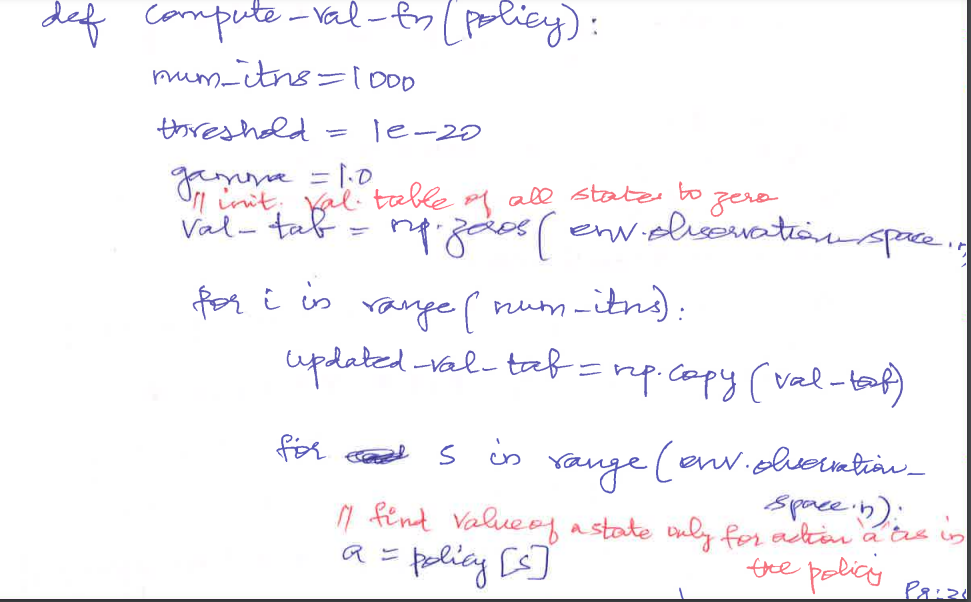 def compute-val-fn(policy):
num_itns = 1000
threshold = 1e-20
gamma = 1.0
// init. val. table of all states to zero
val-tab = np.zeros(env.observation-space.n
for i in range(num-itns):
updated-val-tab = np.copy(val-tab)
for s in range(env.observation-
space.n):
// find value of a state only for action 'a' as in
the policy
a = policy[s]